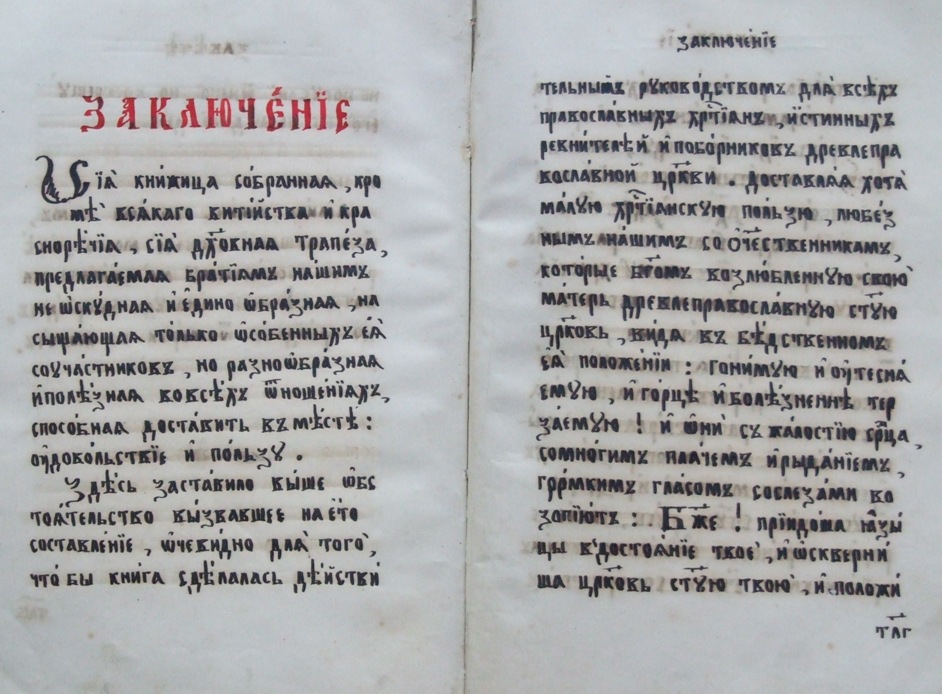 ЗАКЛЮЧЕ́НЇЕ
Сїѧ̀ кни́жица со́бранная, кро
мѣ̀ всѧ́каго витїи́ства и҆ кра
снорѣ́чїѧ, сїѧ̀ дх҃о́вная трапе́за,
предлага́емая бра́тїѧмъ на́шимъ
не ѡ҆ску́дная и҆ є҆ди́но ѡ҆бра́зная, на
сыща́ющая то́лько ѡ҆со́бенныхъ еѧ̀
соуча́стниковъ, но разноѡбра́зная
и҆ поле́зная во всѣ́хъ ѿноше́нїѧхъ,
спосо́бная доста́вить въ мѣ́стѣ:
оу҆дово́льствїе и҆ по́льзу.
Здѣ́сь заста́вило вы́ше ѡ҆бс
тоѧ́тельство вы́звавшее на е҆́то
составле́нїе, ѡ҆чеви́дно длѧ̀ того̀,
что́бы кни́га сдѣ́лалась дѣйстви́
заключе́нїе
тельнымъ руково́дствомъ длѧ̀ всѣ́хъ
правосла́вныхъ хрⷭ҇тїа́нъ, и҆́стинныхъ
ревни́телѣй и҆ побо́рниковъ древлепра
восла́вной цр҃кви. доставлѧ́я хотѧ̀
ма́лую хрⷭ҇тїа́нскую по́льзу, любе́з
нымъ на́шимъ со ѻ҆те́чественникамъ,
кото́рые бг҃омъ возлю́бленную свою̀
ма́терь древлеправосла́вную ст҃у́ю
цр҃ковь, ви́дѧ въ бѣ́дственномъ
еѧ̀ положе́нїи: гони́мую и҆ оу҆тесня́
емую, и҆ го́рцѣ и҆ болѣ́зненнѣ тер
за́емую! и҆ ѡ҆нѝ съ жа́лостїю срⷣца,
со мно́гимъ пла́чемъ и҆ рыда́нїемъ,
гро́мкимъ гла́сомъ со слеза́ми во
зопїю́тъ: Бж҃е! прїидо́ша ꙗ҆зы́
цы в̾ достоѧ́нїе твоѐ, и҆ ѡ҆скверни́
ша цр҃ковь ст҃у́ю твою̀, и҆ положи́
т҃лг